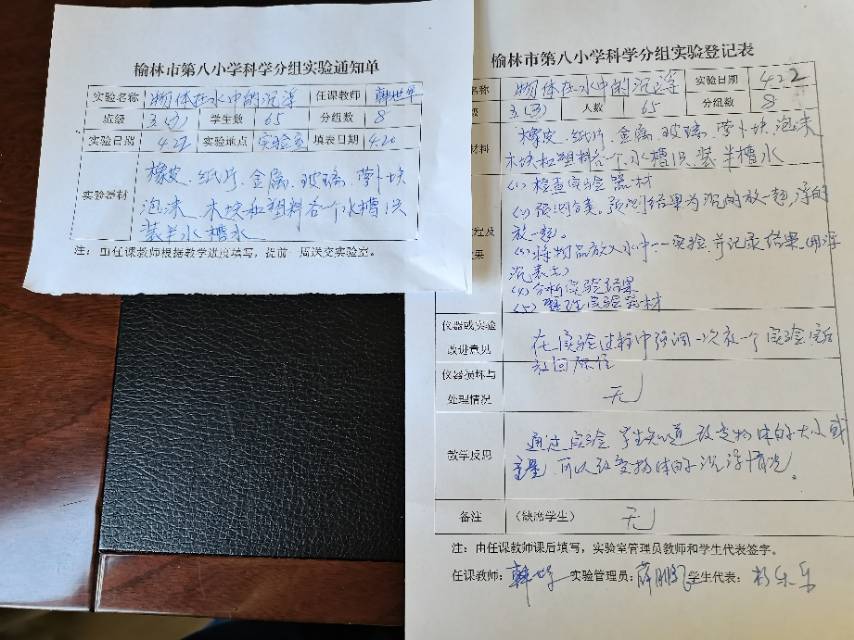 榆林市第八小学科学分组实验通知单
实验名称 物体在水中的沉浮 任课教师
班级 3.(3) 学生数 65 分组数 8
实验日期 4.22 实验地点 实验室 填表日期 4.20
实验器材
橡皮、纸片、金属、玻璃、萝卜块
泡沫、木块和塑料各个水槽1只
装半水槽水
注:由任课教师根据教学进度填写,提前一周送交实验室。
榆林市第八小学科学分组实验登记表
名称 物体在水中的沉浮 实验日期 4.22
级 3.(3) 人数 65 分组数 8
材料
橡皮、纸片、金属、玻璃、萝卜块、泡沫
木块和塑料各个、水槽1只、装半槽水
程及
果
(1)检查实验器材
(2)预测分类。预测结果为沉的放一起,浮的
放一起。
(3)将物品放入水中一一实验,并记录结果。(用浮
沉表示)
(4)分析实验结果
(5)整理实验器材
仪器或实验
改进意见
在实验过程中强调一次放一个实验完后
放回原位
仪器损坏与
处理情况
无
教学反思
通过实验 学生知道 改变物体的大小或
重量 可以改变物体的沉浮情况。
备注 (缺席学生) 无
注:由任课教师课后填写,实验室管理员教师和学生代表签字。
任课教师: 实验管理员: 学生代表: